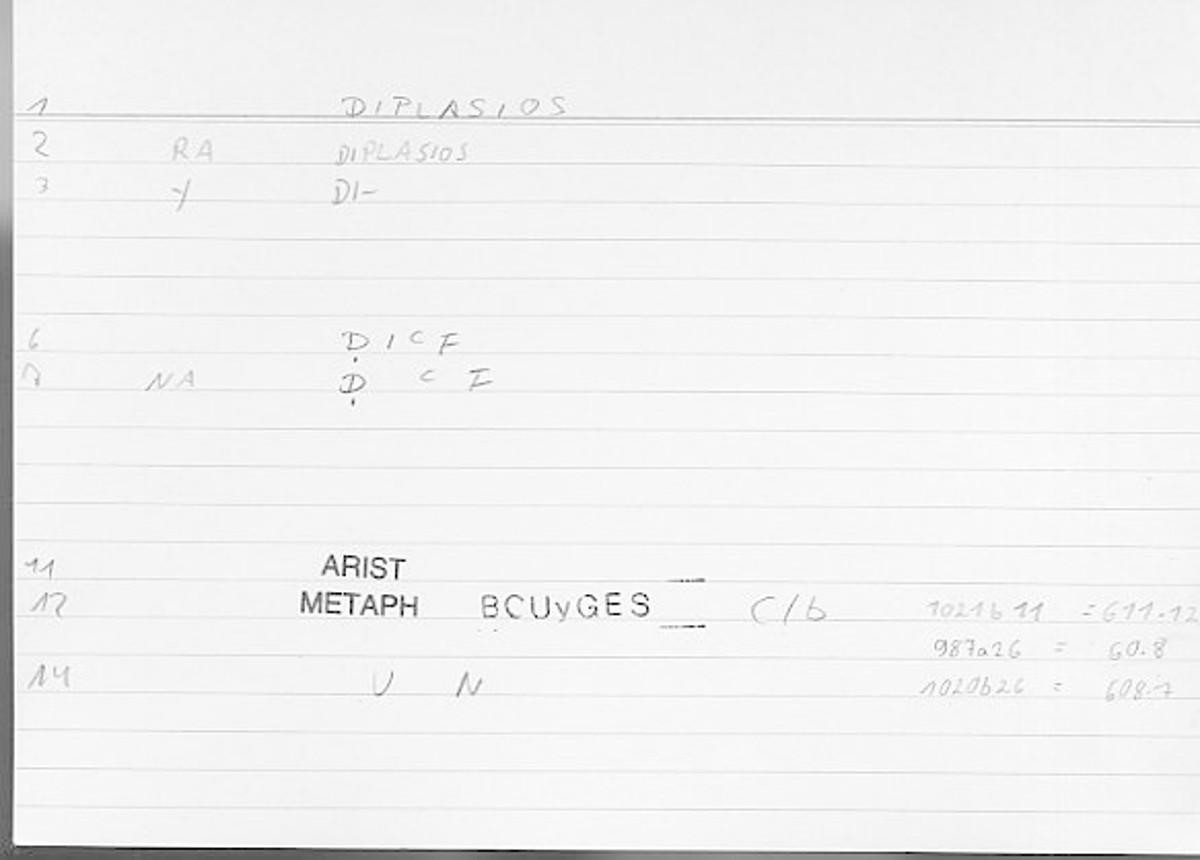 1 DIPLASIOS
2 RA DIPLASIOS
3 y DI-
6 Ḍ I C F
7 NA Ḍ C F
11 ARIST
12 METAPH BCUyGES C/b 1021b11 = 611.12
987a26 = 60.8
14 U N 1020b26 = 608.7